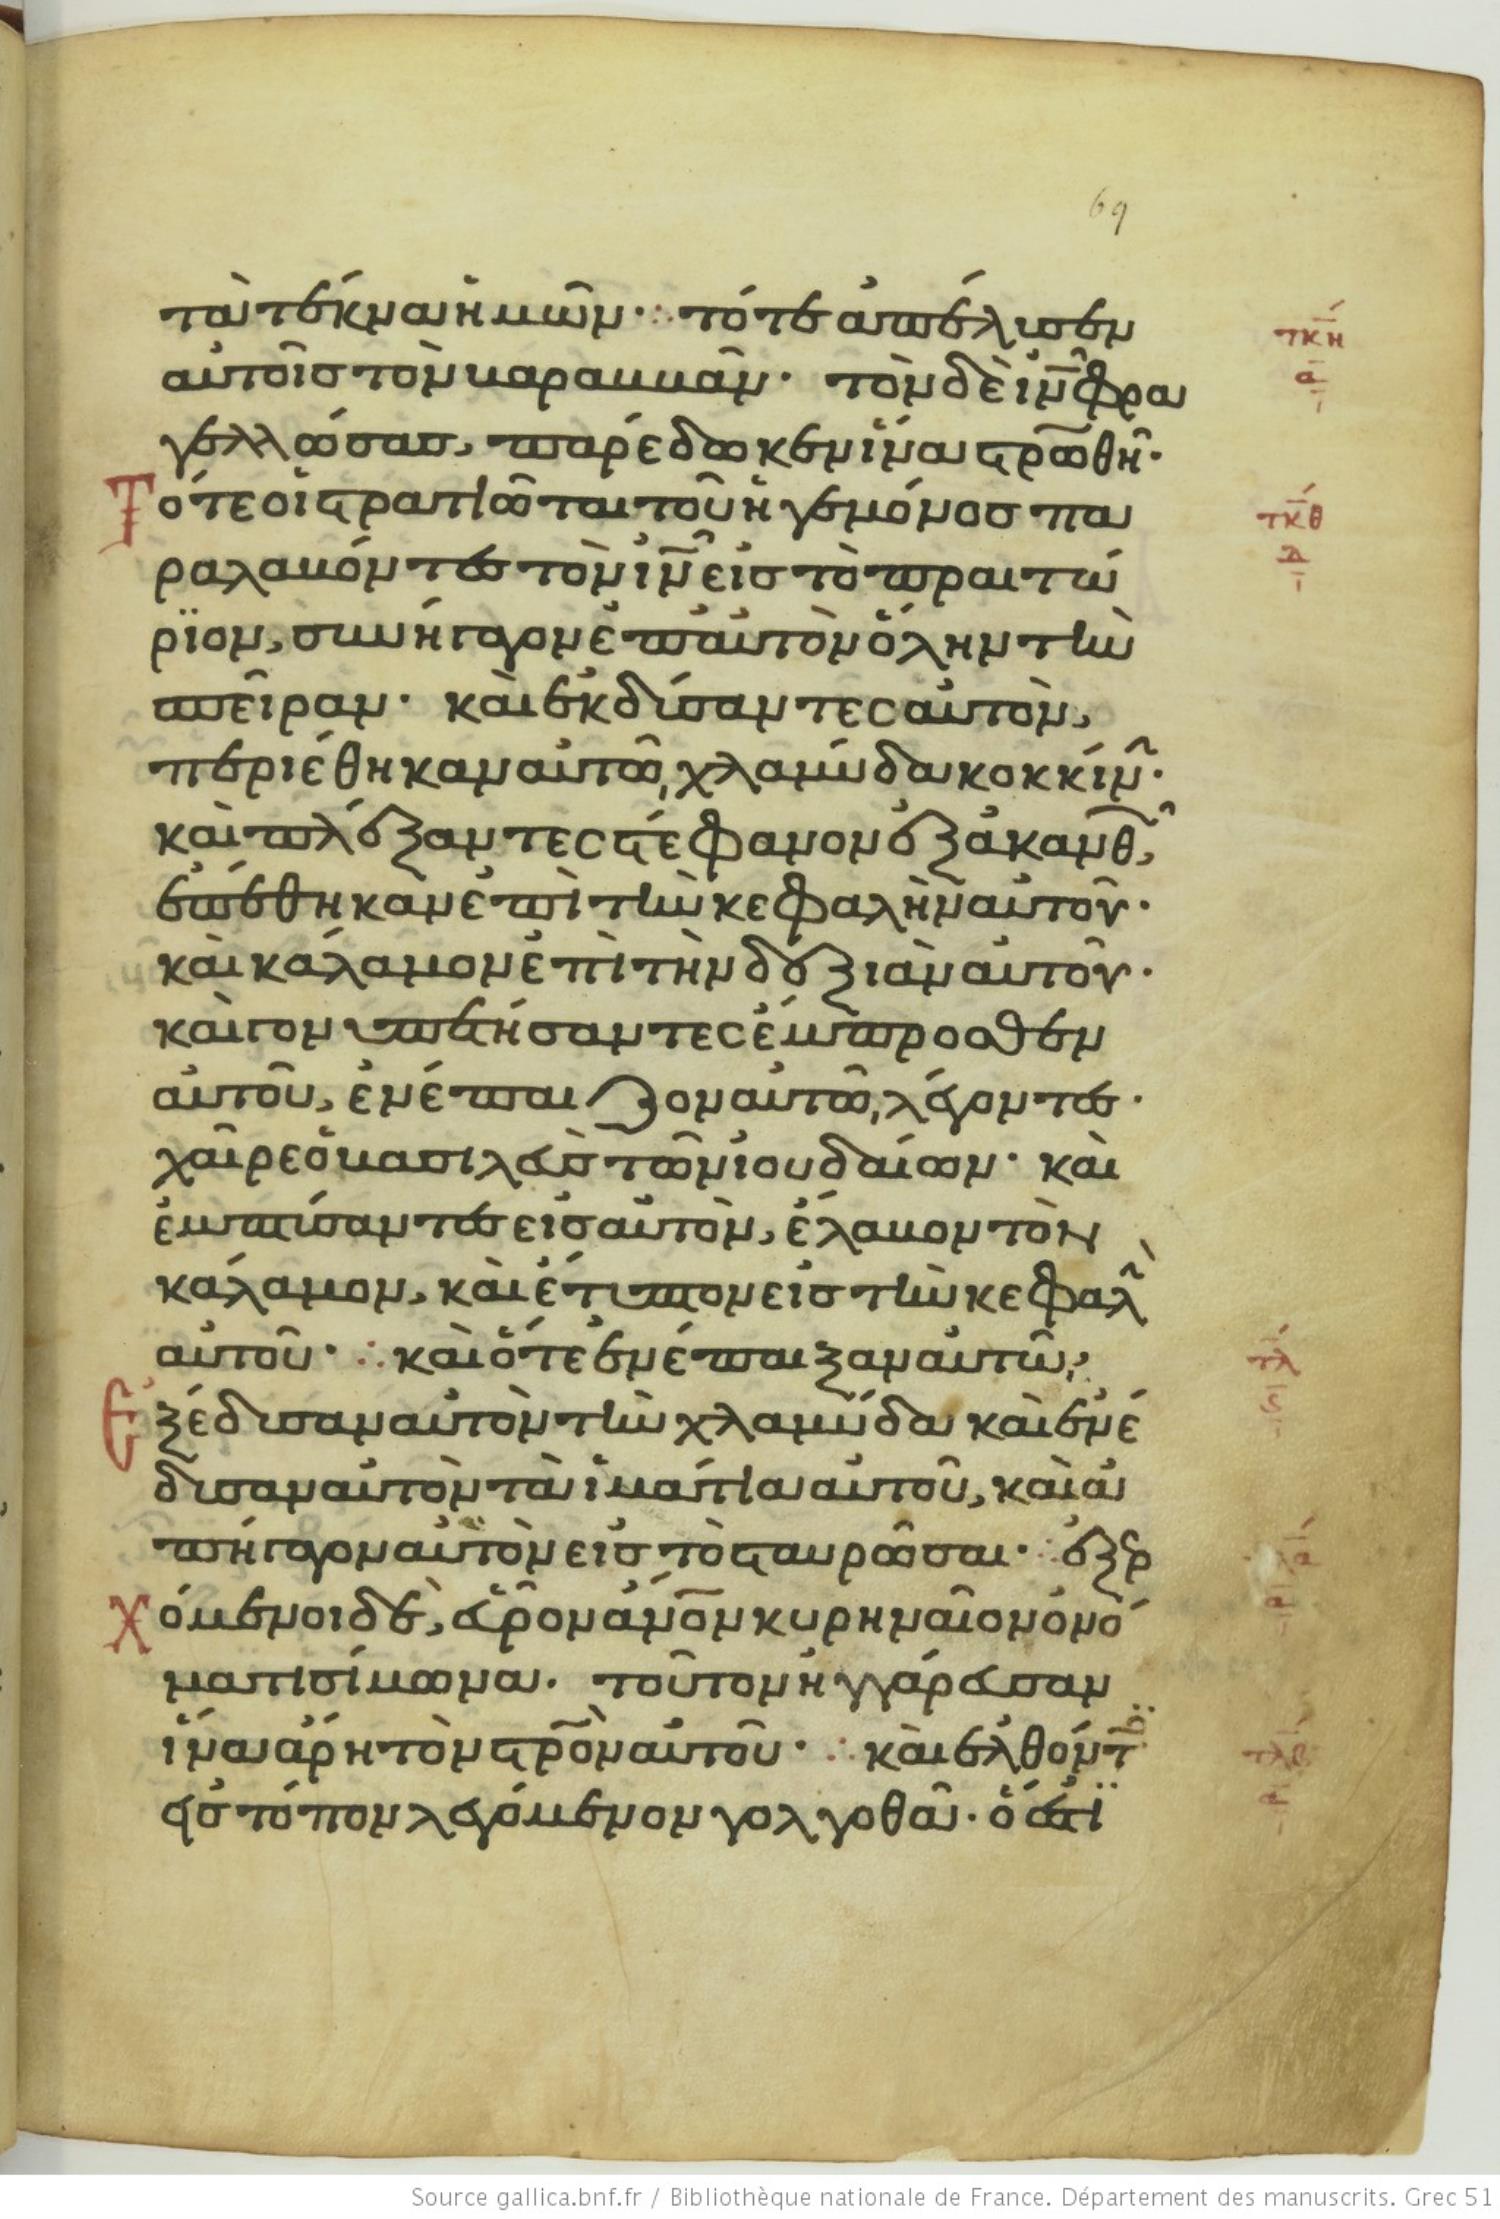 69
τὰ τέκνα ἡμῶν· ∴ τότε ἀπέλυσεν
αὐτοῖς τὸν βαραββᾶν· τὸν δὲ ιν̅ φρα
γελλώσας, παρέδωκεν ἵνα στρ̅ωθῆ·
Τότε οἱ στρατιῶται τοῦ ἡγεμόνος πα
ραλαβόντες τὸν ιν̅ εἰς τὸ πραιτώ
ρϊον, συνήγαγον ἐπ αὐτὸν ὅλην τὴν
σπεῖραν· καὶ ἐκδύσαντες αὐτὸν,
περιέθηκαν αὐτῶ, χλαμύδα κοκκίν·
καὶ πλέξαντες στέφανον ἐξ ἀκανθ,
ἐπέθηκαν ἐπὶ τὴν κεφαλὴν αὐτοῦ·
καὶ κάλαμον ἐπὶ τὴν δεξιὰν αὐτοῦ·
καὶ γονυπετήσαντες ἔμπροσθεν
αὐτοῦ, ἐνέπαιζον αὐτῶ, λέγοντες·
χαῖρε ὁ βασιλεὺς τῶν ἰουδαίων· καὶ
ἐμπτύσαντες εἰς αὐτὸν, ἔλαβον τὸν
κάλαμον, καὶ ἔτυπτον εἰς τὴν κεφαλ
αὐτοῦ· ∴ καὶ ὅτε ἐνέπαιξαν αὐτῶ,
Ἐξέδυσαν αὐτὸν τὴν χλαμύδα καὶ ἐνέ
δυσαν αὐτὸν τὰ ἱμάτια αὐτοῦ, καὶ ἀ
πήγαγον αὐτὸν εἰς τὸ σταυρῶσαι· ∴ ἐξερ
Χόμενοι δὲ, εὗρον ἄνο̅ν κυρηναῖον ὀνό
ματι σίμωνα. τοῦτον ἠγγάρευσαν
ἵνα ἄρη τὸν στρ̅ον αὐτοῦ· ∴ καὶ ἐλθόντ
εἰς τόπον λεγόμενον γολγοθᾶ· ὅ ἐστϊ
τκη
α
ι
τκθ
δ
ι
τλ
ς
ι
τλα
α
ι
τλβ
α
ι
Source gallica.bnf.fr / Bibliothèque nationale de France. Département des manuscrits. Grec 51